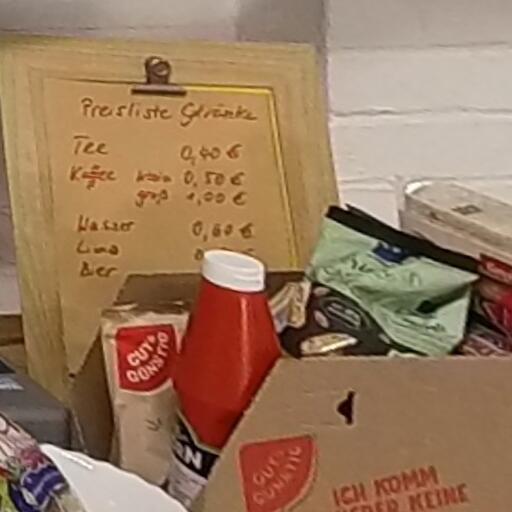 Preisliste Getränke
Tee 0,40 €
Kaffee klein 0,50 €
groß 1,00 €
Wasser 0,60 €
Limo
Bier
GUT&
GÜNSTIG
GUT&
GÜNSTIG
ICH KOMM
KEINE